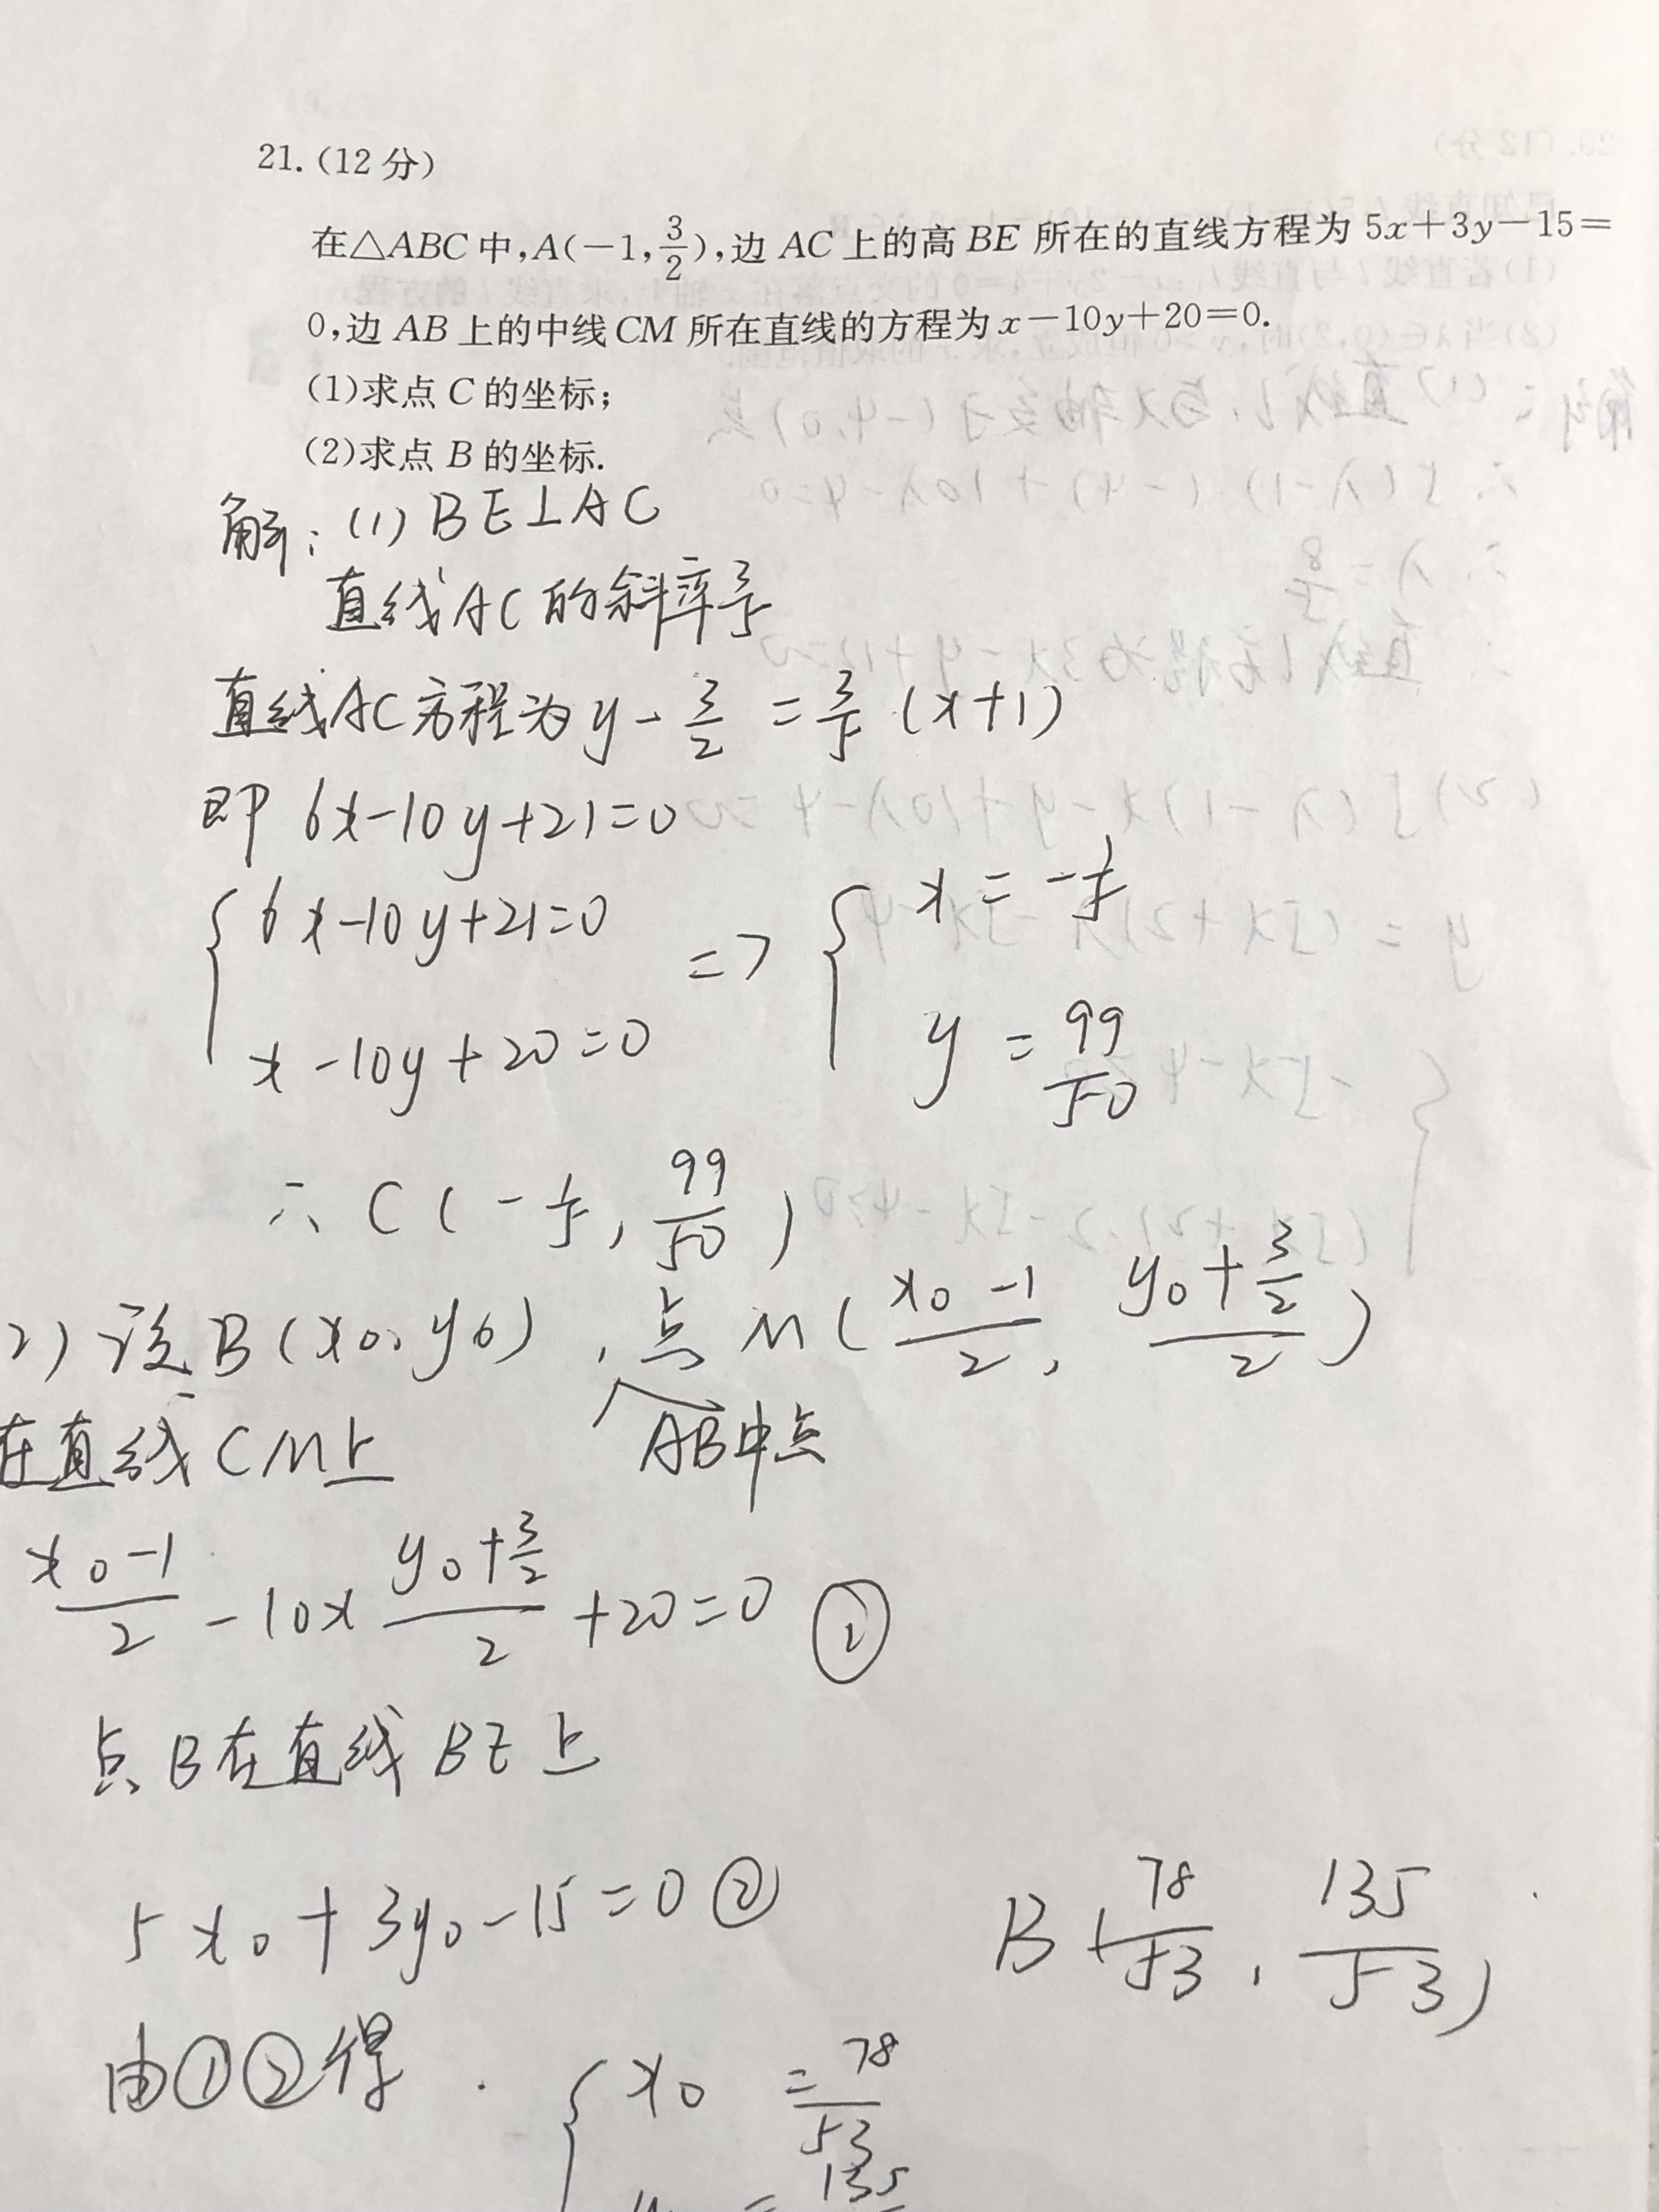 21.(12分)
在△ABC中,A(-1,3/2),边AC上的高BE所在的直线方程为5x+3y-15=
0,边AB上的中线CM所在直线的方程为x-10y+20=0.
(1)求点C的坐标;
(2)求点B的坐标.
解:(1)BE⊥AC
直线AC的斜率3/5
直线AC方程为y-3/2=3/5(x+1)
即 6x-10y+21=0
{6x-10y+21=0 => {x=-1/5
x-10y+20=0 y=99/50
∴C(-1/5,99/50)
2)设B(x0,y0),点M((x0-1)/2,(y0+3/2)/2)
在直线CM上 AB中点
(x0-1)/2-10×(y0+3/2)/2+20=0 ①
点B在直线BE上
5x0+3y0-15=0 ②
B(78/53,135/53)
由①②得 {x0=78/53
y0=135